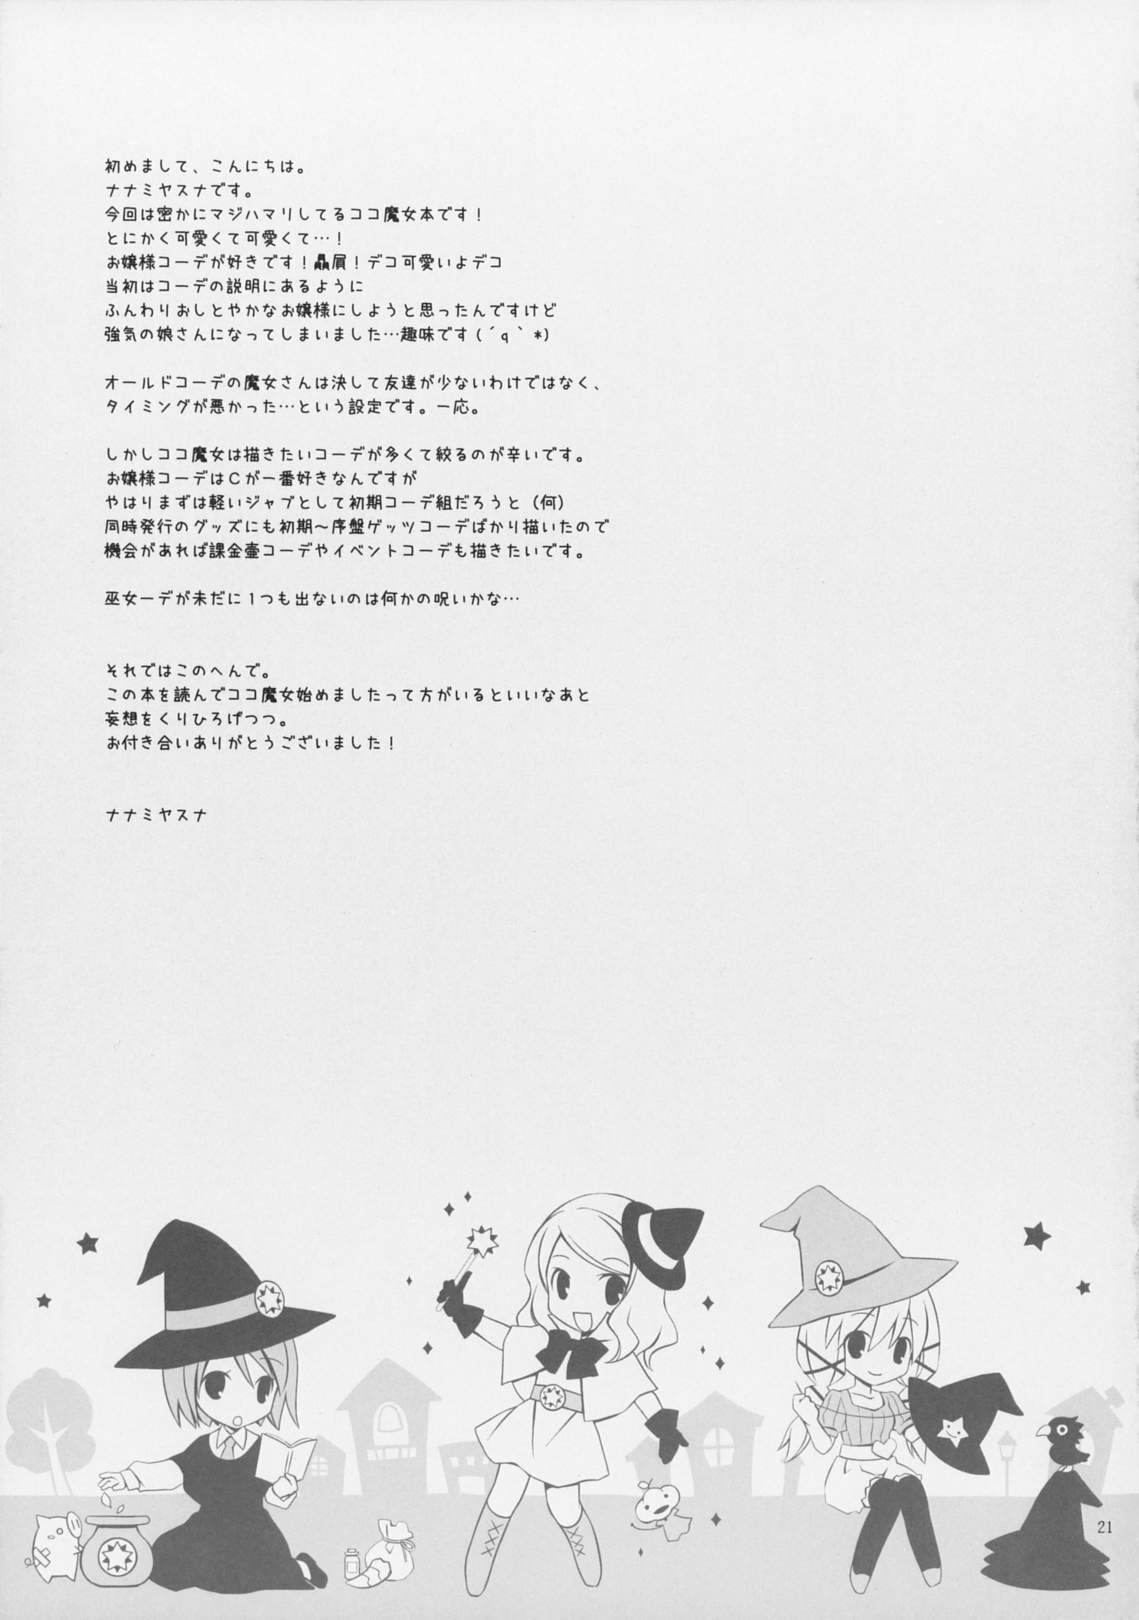 初めまして、こんにちは。
ナナミヤスナです。
今回は密かにマジハマリしてるココ魔女本です！
とにかく可愛くて可愛くて…！
お嬢様コーデが好きです！贔屓！デコ可愛いよデコ
当初はコーデの説明にあるように
ふんわりおしとやかなお嬢様にしようと思ったんですけど
強気の娘さんになってしまいました…趣味です(´q｀*)
オールドコーデの魔女さんは決して友達が少ないわけではなく、
タイミングが悪かった…という設定です。一応。
しかしココ魔女は描きたいコーデが多くて絞るのが辛いです。
お嬢様コーデはCが一番好きなんですが
やはりまずは軽いジャブとして初期コーデ組だろうと（何）
同時発行のグッズにも初期～序盤ゲッツコーデばかり描いたので
機会があれば課金壷コーデやイベントコーデも描きたいです。
巫女ーデが未だに1つも出ないのは何かの呪いかな…
それではこのへんで。
この本を読んでココ魔女始めましたって方がいるといいなあと
妄想をくりひろげつつ。
お付き合いありがとうございました！
ナナミヤスナ
21